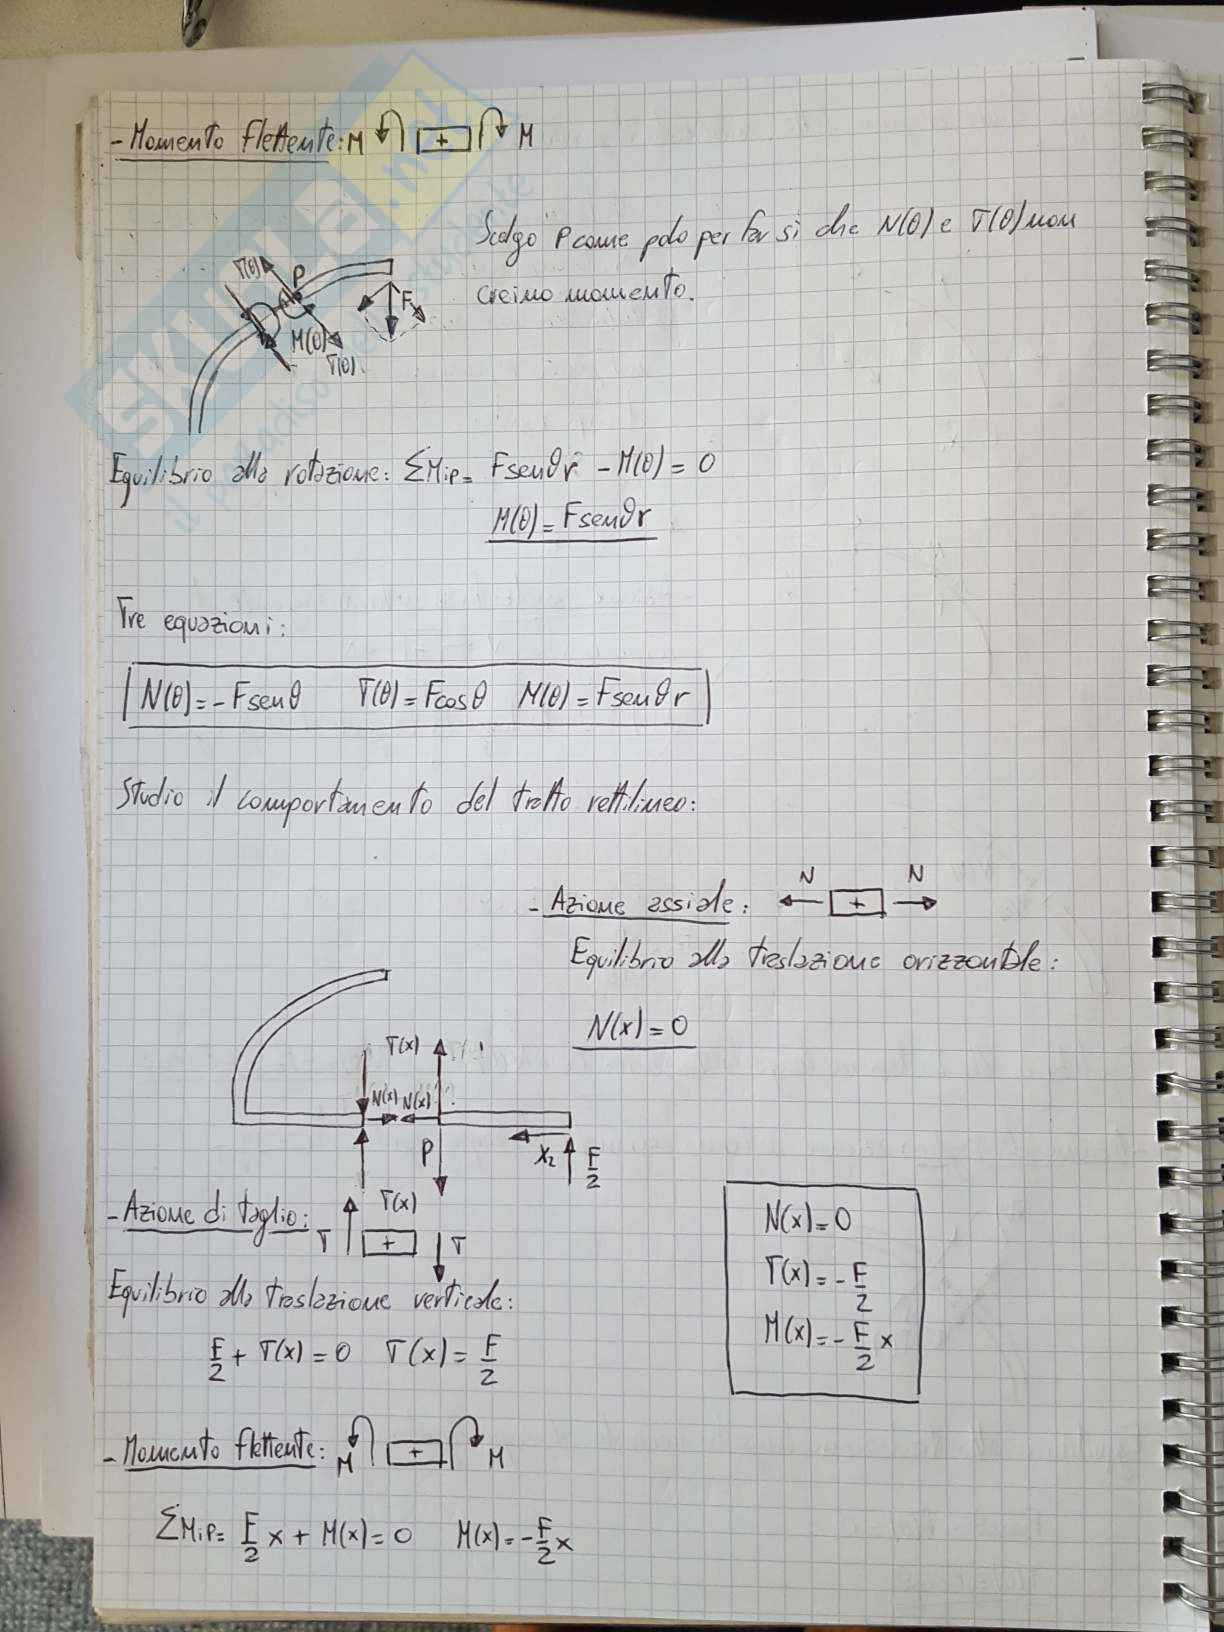 - Momento flettente: M + M
Scelgo P come polo per far si che N(θ) e T(θ) non
creino momento.
T(θ) P
F
M(θ)
T(θ)
Equilibrio alla rotazione: ΣMiP= Fsenθr - M(θ) = 0
M(θ) = Fsenθr
Tre equazioni:
N(θ) = -Fsenθ T(θ) = Fcosθ M(θ) = Fsenθr
Studio il comportamento del tratto rettilineo:
N N
- Azione assiale: +
Equilibrio alla traslazione orizzontale:
N(x) = 0
T(x)
N(x) N(x)
P x₂ F/2
T(x)
- Azione di taglio: T + T
Equilibrio alla traslazione verticale:
F/2 + T(x) = 0 T(x) = F/2
N(x) = 0
T(x) = -F/2
M(x) = -F/2 x
- Momento flettente: M + M
ΣMiP= F/2 x + M(x) = 0 M(x) = -F/2 x
SKUOLA.net